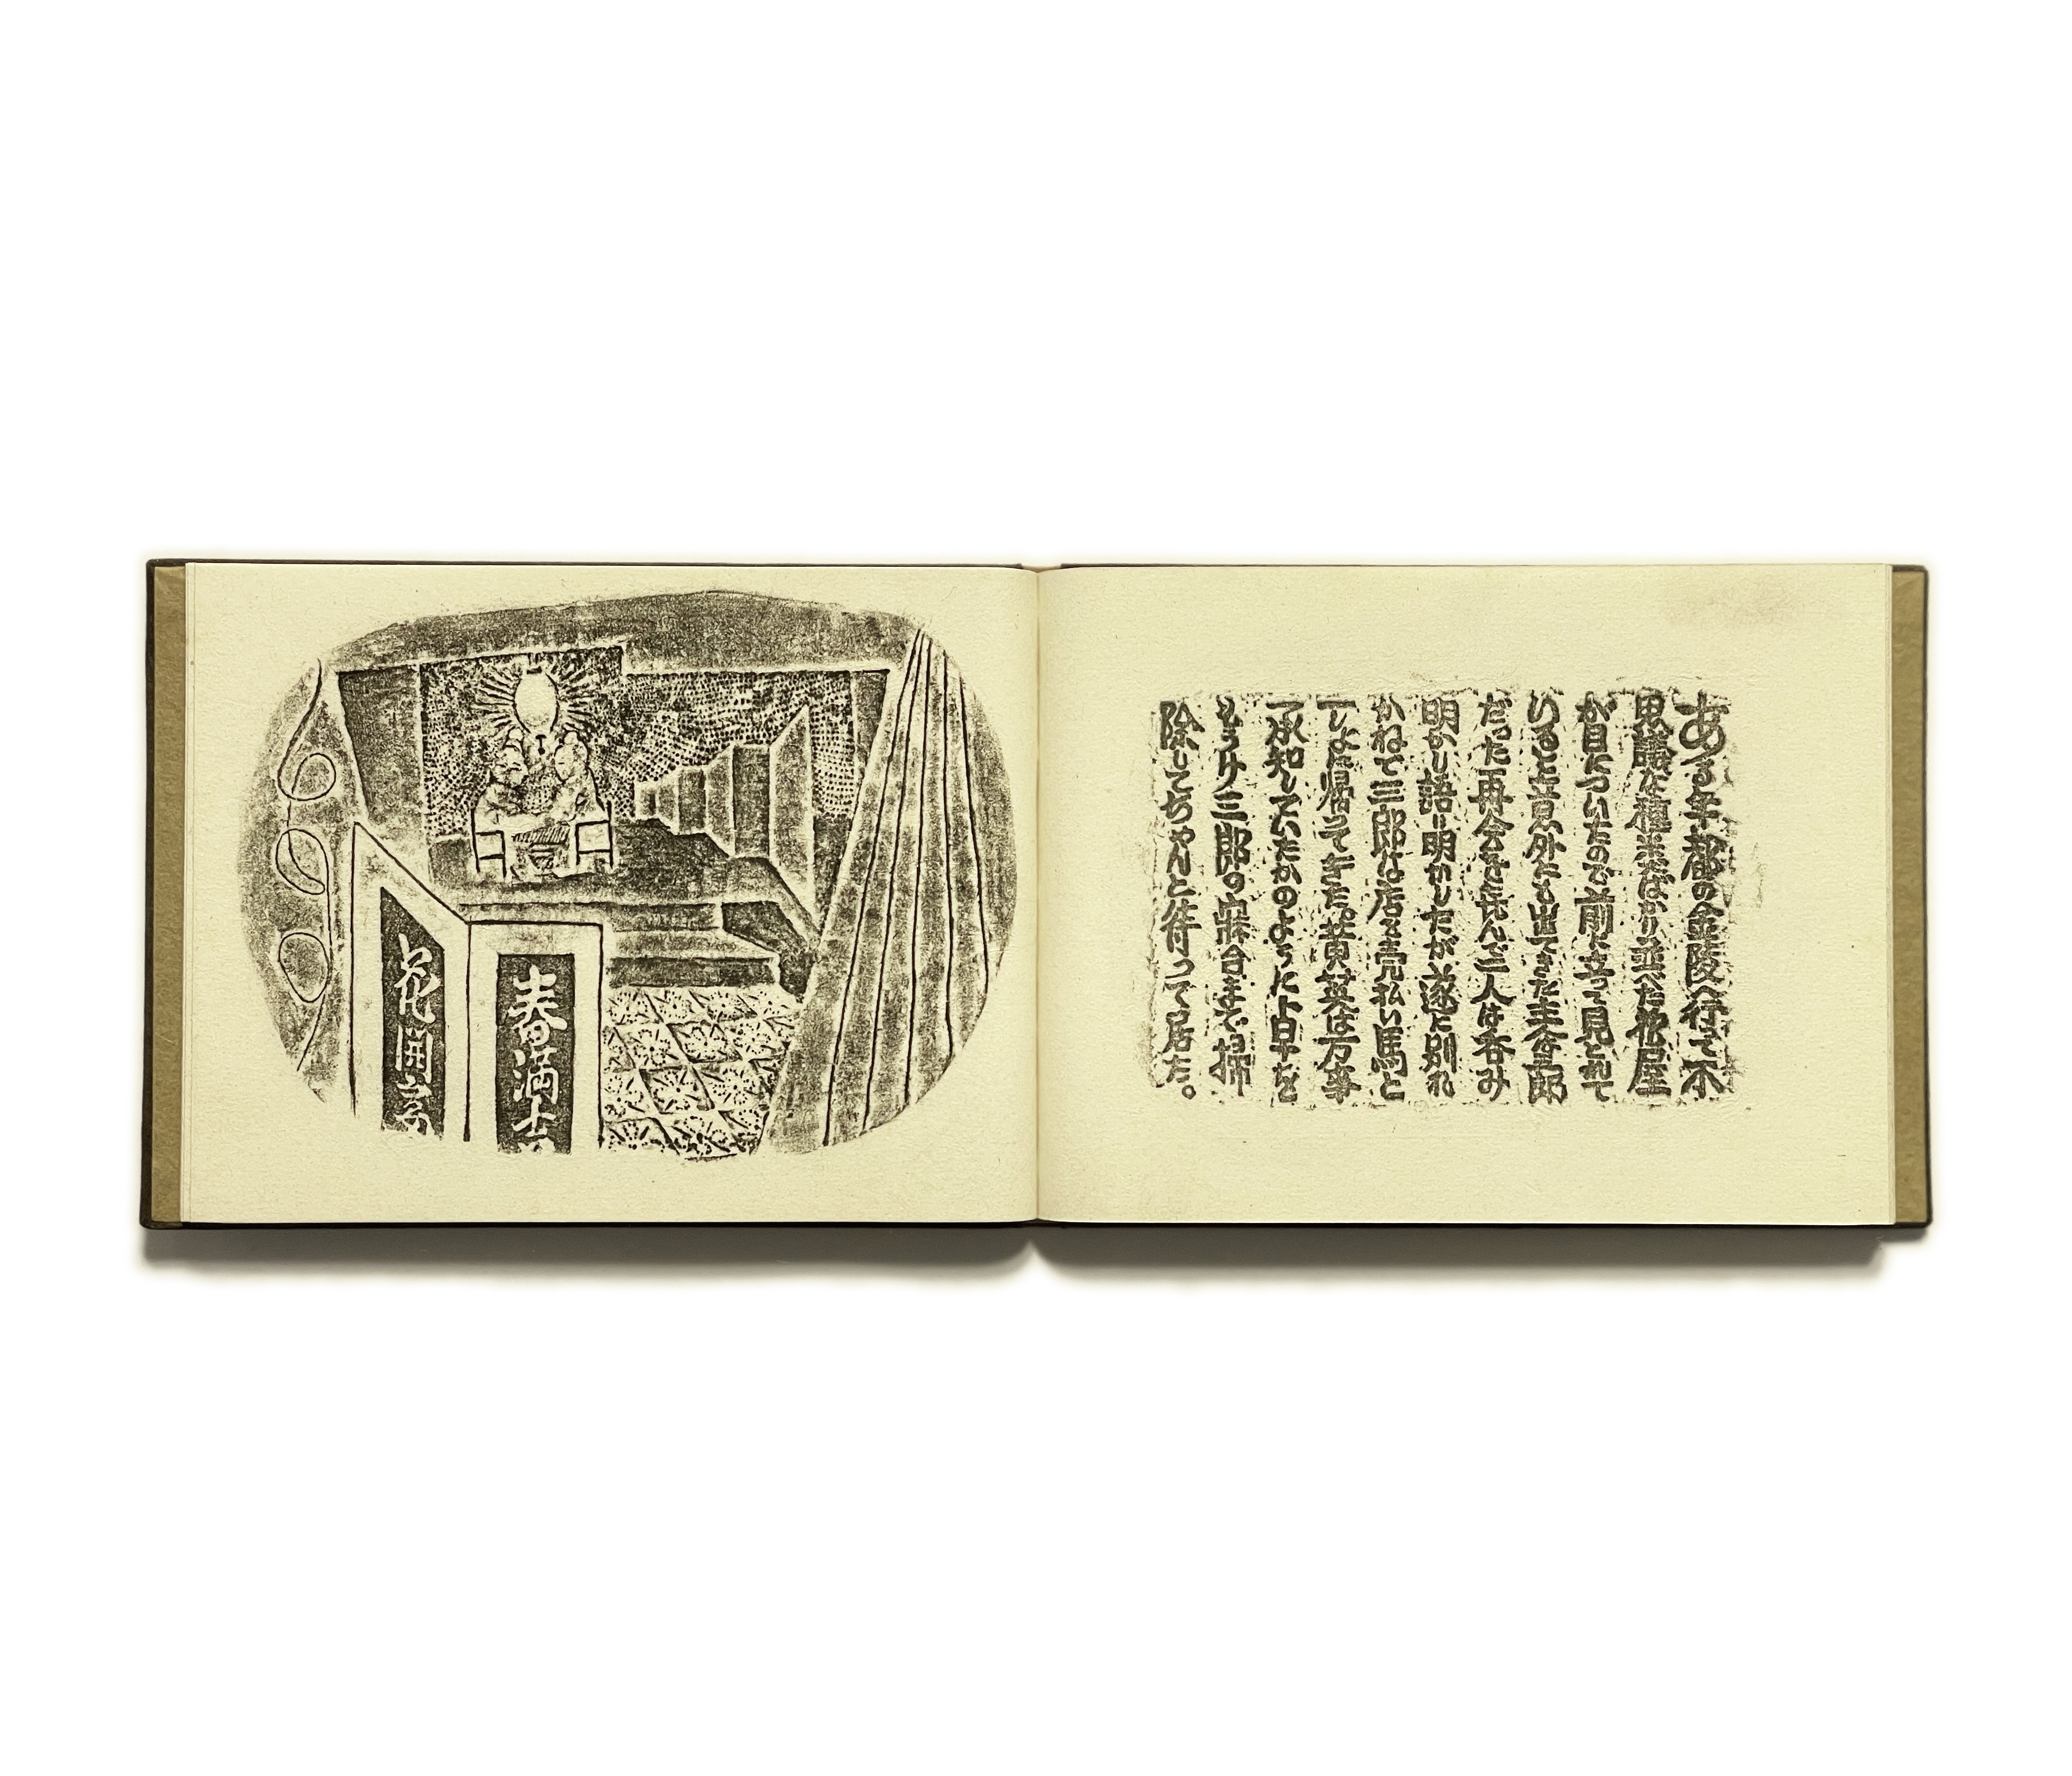 ある年都の金陵へ行って不
思議な種类ばかり並べた花屋
が目についたので前に立って見とれて
いると意外にも出てきた主三郎
だった再会を喜んで二人は呑み
明かし語り明かしたが遂に別れ
かねて三郎は店を売払い馬と
一しょに帰ってきた。黄英は万事
承知していたかのように
もうけ三郎の寐台まで掃
除してちゃんと待って居た。
春満
花開